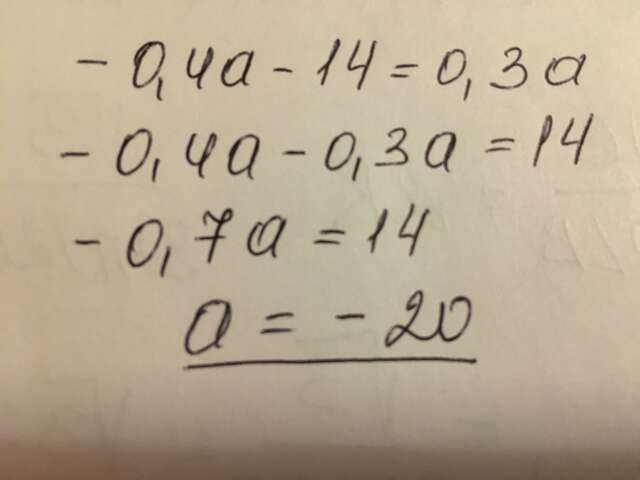 - 0,4a - 14 = 0,3a
- 0,4a - 0,3a = 14
- 0,7a = 14
a = - 20